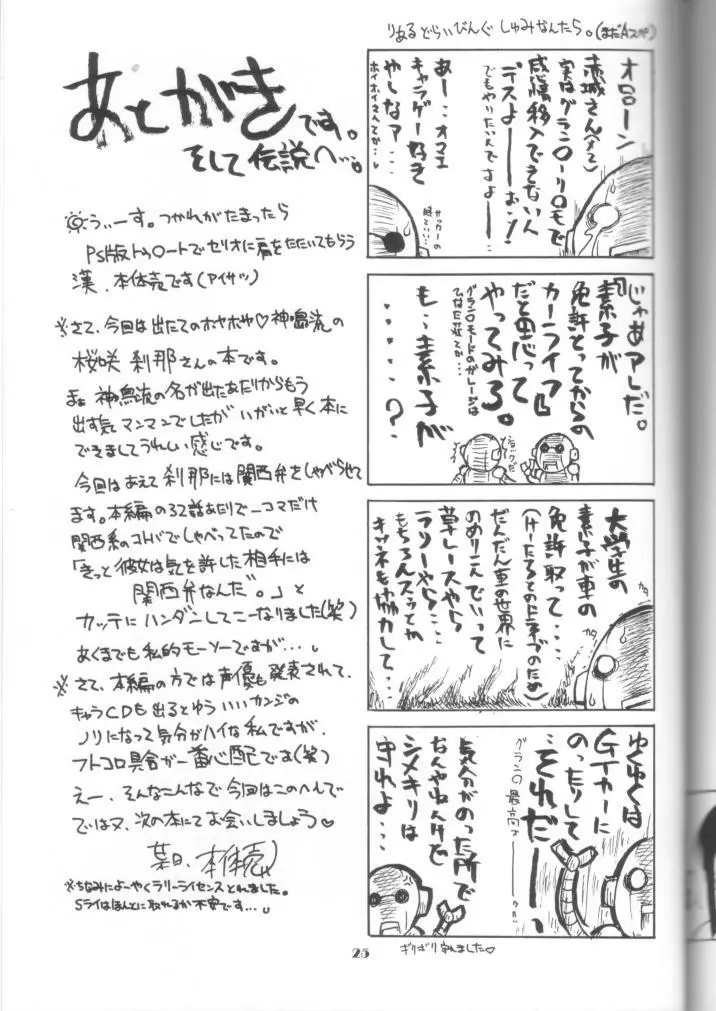 あとがきです。
そして伝説へ…。
うぃーす。つかれがたまったら
PS版トゥ○ートでセリオに肩をたたいてもらう
漢、本体売です(アイサツ)
※さて、今回は出たてのホヤホヤ♡神鳴流の
桜咲 刹那さんの本です。
まぁ 神鳴流の名が出たあたりからもう
出す気マンマンでしたが いがいと早く本に
できましてうれしい感じです。
今回はあえて 刹那には関西弁をしゃべらせて
ます。本編の32話あたりで一コマだけ
関西系のコトバでしゃべってたので
「きっと彼女は気を許した相手には
関西弁なんだ。」と
カッテにハンダンしてこーなりました(笑)
あくまでも私的モーソーですが…。
※さて、本編の方では声優も発表されて、
キャラCDも出るとゆういいカンジの
ノリになって気分がハイな私ですが、
フトコロ具合が一番心配です(笑)
えー、そんなこんなで今回はこのへんで
ではヌ、次の本にてお会いしましょう♡
某日、本体売
※ちなみによーやくラリーライセンスとれました。
Sライはほんとに取れるか不安です…。
りあるどらいびんぐ しゅみなんたら。(まだAスペ)
オローン
赤城さん(メ2)
実はグラン○ーリ○モで
感情移入できないん
デスよーーおッ!
でもやりたいんですよーー
あーー、オマエ
キャラゲー好き
やしなァ…
ホイホイさんとか…。
サッカーの
時といい…
「じゃあアレだ。
素子が
免許とってからの
カーライフ」
だと思って
やってみろ。
グラン○モードのガレージは
ひなた荘とか…
も‥素子が
‥‥‥?
ショックだ
大学生の
素子が車の
免許取って…
(けーたろとのドライブのため)
だんだん車の世界に
のめりこんでいって
草レースやら
ラリーやら…
もちろんスゥとか
キツネも協力して…
カタ
カタ
ゆくゆくは
GTカーに
のったりして
‥それだーーっ
グラン○最高ォーー
気分がのった所で
なんやねんけど
シメキリは
守れよ…
25
ギリギリ守れました♡